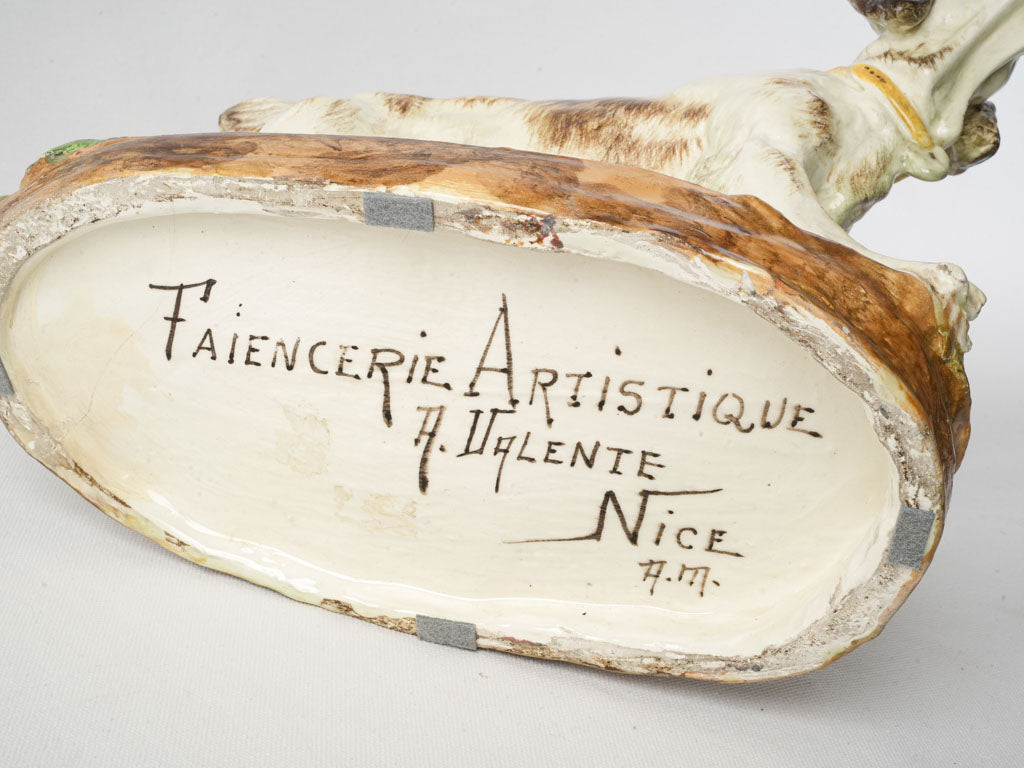 FAiENCERiE ARTiSTiQUE
A. VALENTE
NiCE
A.M.